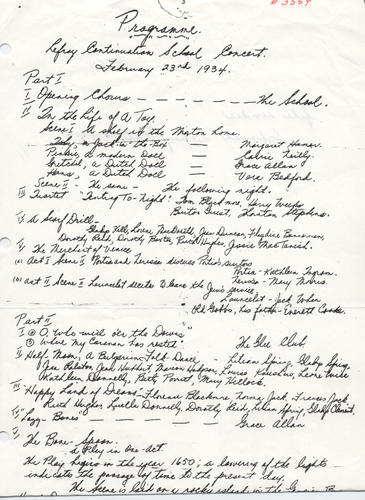 # 3354
Programme.
Lefroy Continuation School Concert.
February 23rd 1934.
Part I
I Opening Chorus - - - - - The School.
II In the Life of A Toy.
Scene I A shelf in the Morton home.
Toby, a Jack-in-the-Box — Margaret Hanar.
Pinkie, a modern Doll — Carrie Reilly.
Gretchel, a Dutch Doll — Grace Allan
Hans, a Dutch Doll — Vera Bedford.
Scene II - The same - The following night.
III Quartet "Tenting To-night" Tom Blackmore, Harry
Burton Guest, Stanton Stephens.
IV A Scarf Drill -
Gladys Hill, Jean Duncan, Phyllis
Dorothy Reid, Dorothy Ruth Hughes, Jessie MacTavish.
V The Merchant of Venice
(a) Act I Scene II Portia and Nerissa discuss Portia's suitors
Portia - Kathleen Ingram.
Nerissa - Mary Morris.
(b) Act II Scene II Launcelot decides to leave the Jew's service.
Launcelot - Jack
Old Gobbo, his father - Everett Cooke.
Part II
I (a) O, Who will o'er the Downs The Glee Club
(b) Where My Caravan has rested
II Half Moon, A Bulgarian Folk Dance - Lilian Spring, Gladys Spring,
Jean Ralston, Jean Hubbert, Marion Hodgson, Louise
Kathleen Donnelly, Ruth Mary
III Happy Land of Dreams - Florence Blackmore, Jack, Frances Jack,
Ruth Hughes, Luella Donnelly, Dorothy Reid, Lilian Spring, Gladys
IV "Lazy-Bones" - - Grace Allan
V
The Bone Spoon.
a Play in One-Act.
The Play begins in the year 1650; a lowering of the lights
indicates the passage of time to the present day.
The Scene is laid on a rocky island in the